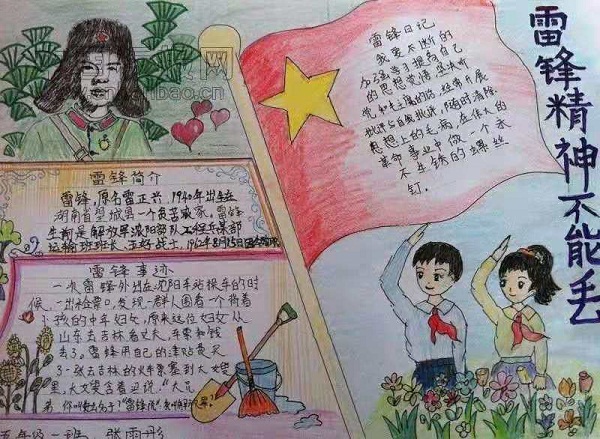 雷锋精神不能丢
雷锋日记
我要不断的
加强学习提高自己
的思想觉悟坚决听
党和毛主席的话经常开展
批评与自我批评,随时清除
思想上的毛病,在伟大的
革命事业中做一个永
不生锈的螺丝
钉.
雷锋简介
雷锋,原名雷正兴,1940年出生在
湖南省望城县一个贫苦农家。雷锋
生前是解放军沈阳部队工程兵某部
运输班班长、五好战士,1962年8月15日
雷锋事迹
一次雷锋外出在沈阳车站换车的时
候,一出检票口,发现一群人围着一个背着
小孩的中年妇女,原来这位妇女从
山东去吉林看丈夫,车票和钱
丢了。雷锋用自己的津贴费买
了一张去吉林的火车票塞到大嫂
里,大嫂含着泪说:"大兄
弟,你叫
五年级一班 张雨彤